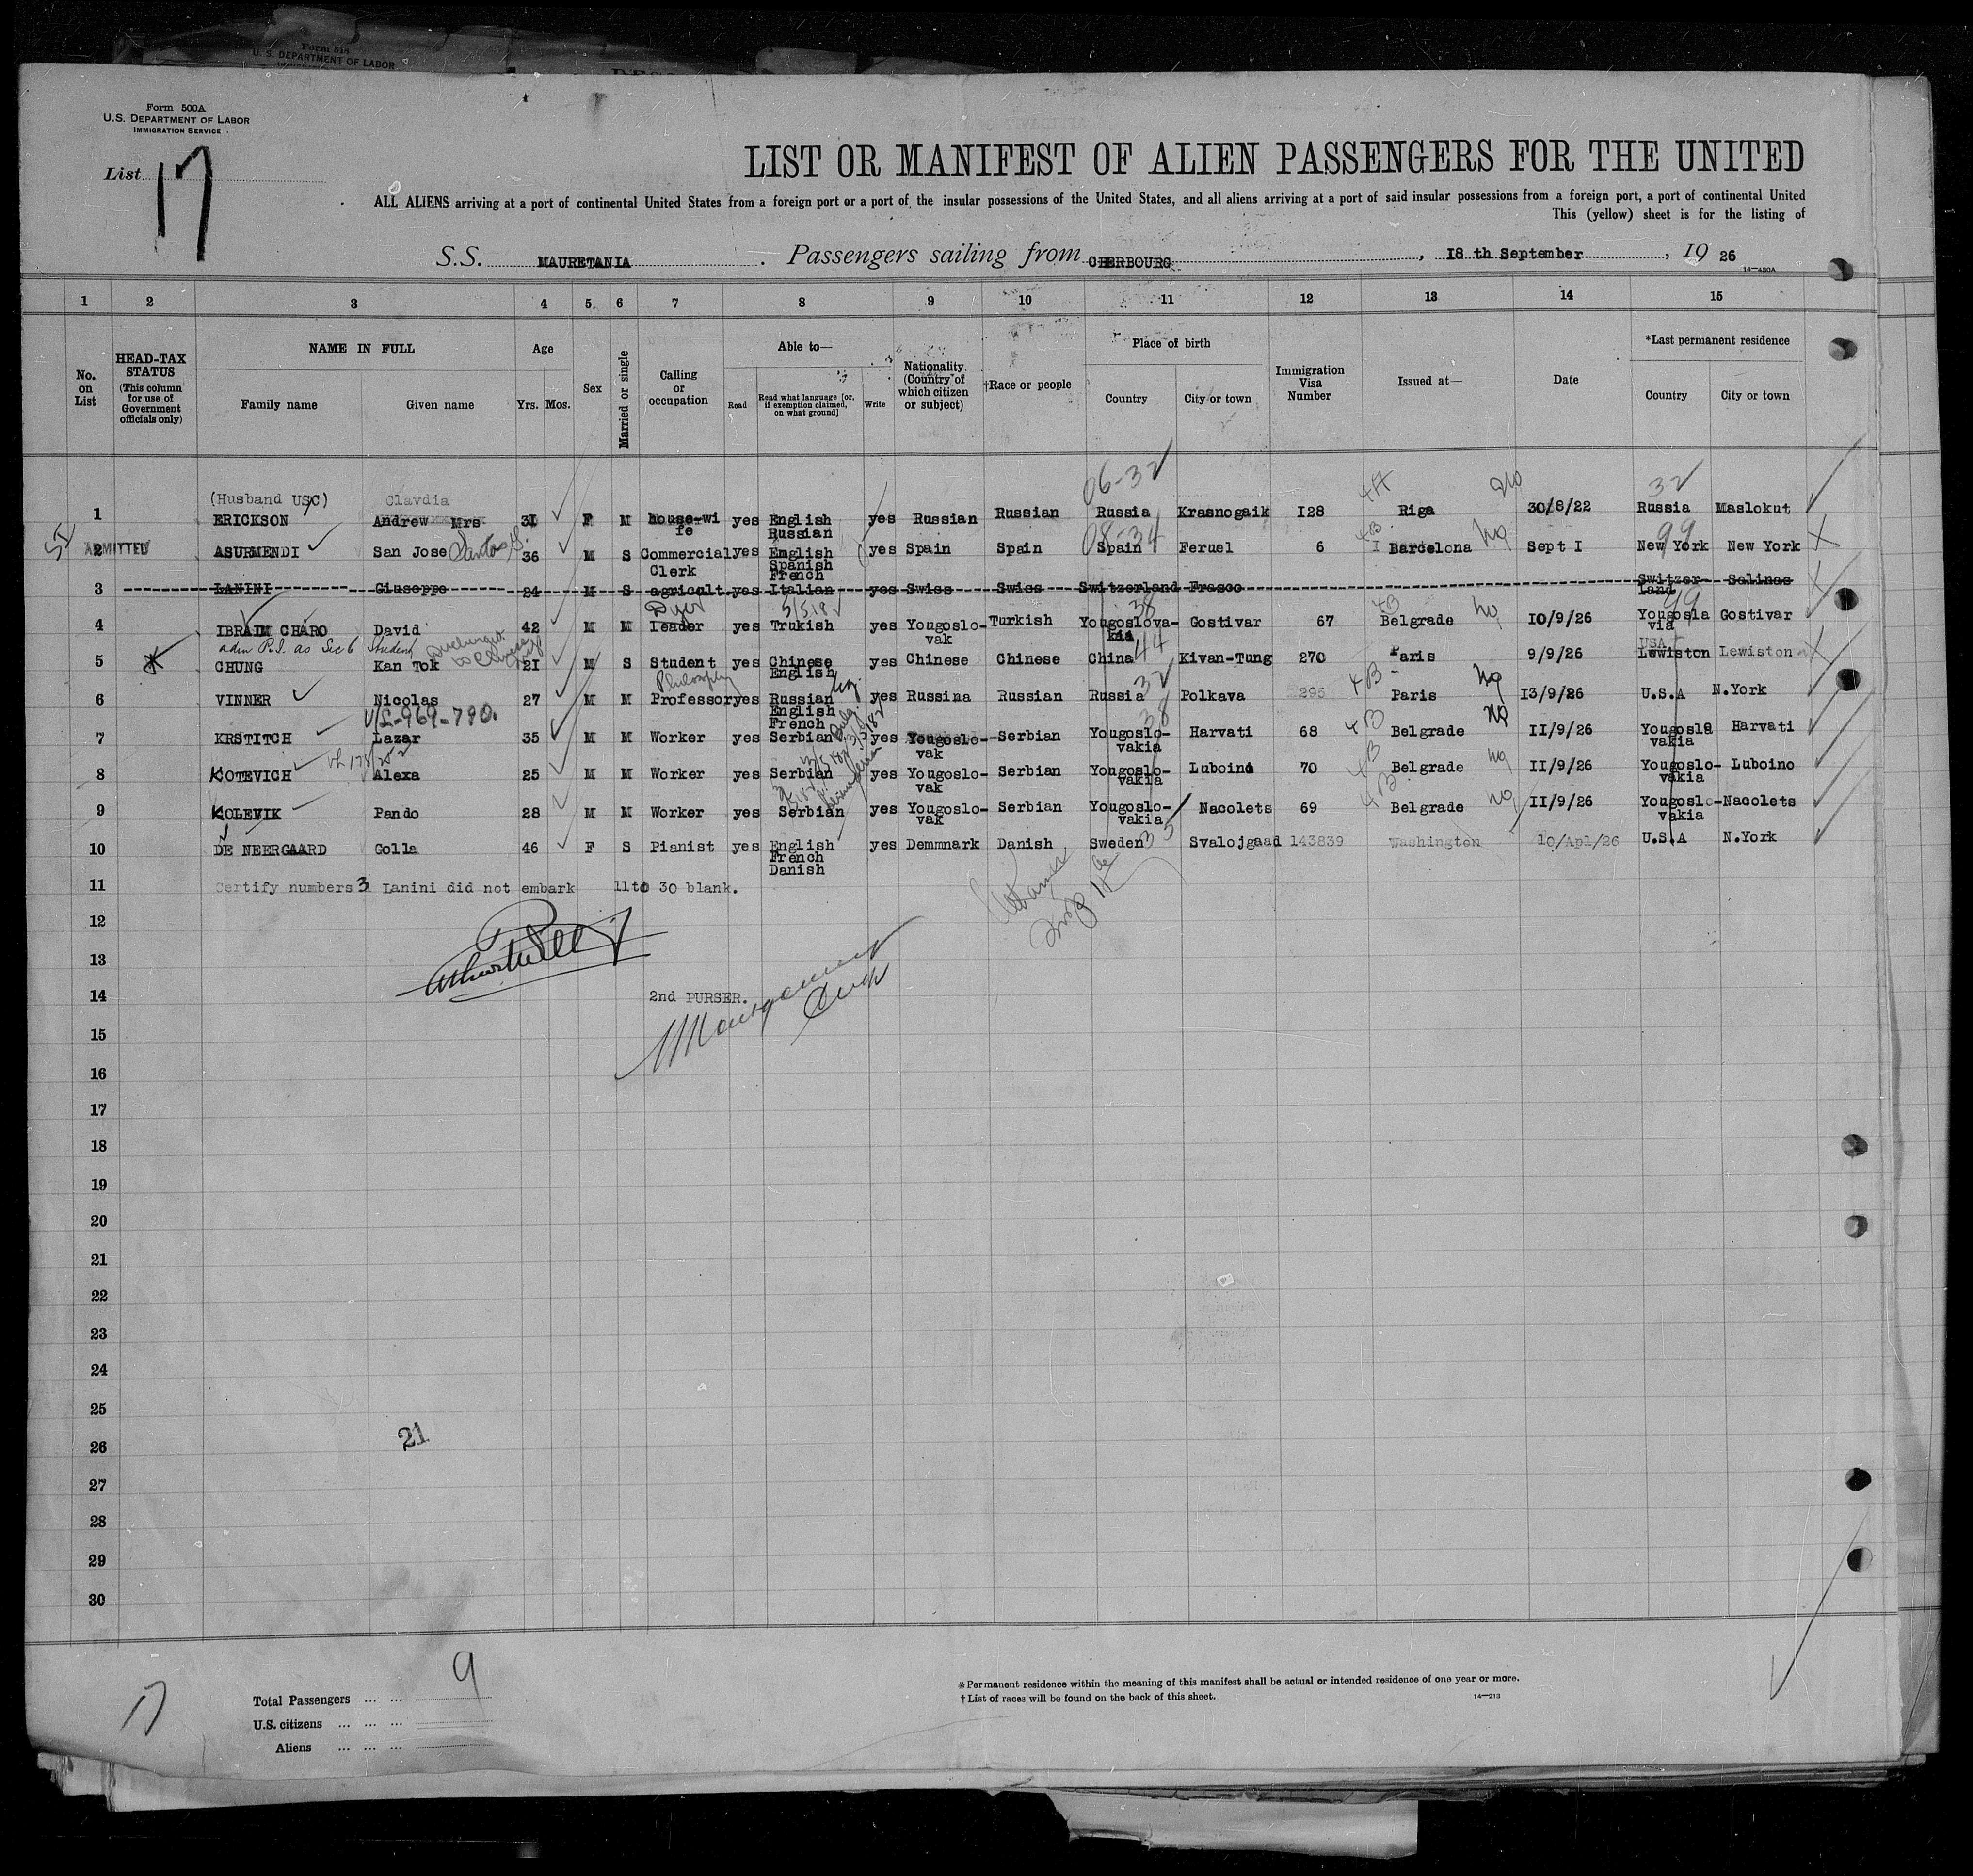 Form 518
U. S. DEPARTMENT OF LABOR
Form 500A
U.S. DEPARTMENT OF LABOR
IMMIGRATION SERVICE
List 17
LIST OR MANIFEST OF ALIEN PASSENGERS FOR THE UNITED
ALL ALIENS arriving at a port of continental United States from a foreign port or a port of the insular possessions of the United States, and all aliens arriving at a port of said insular possessions from a foreign port, a port of continental United
This (yellow) sheet is for the listing of
S.S. MAURETANIA . Passengers sailing from CHERBOURG , 18 th September , 19 26
14—430A
1 2 3 4 5 6 7 8 9 10 11 12 13 14 15
No. on List
HEAD-TAX STATUS (This column for use of Government officials only)
NAME IN FULL Family name Given name
Age Yrs. Mos.
Sex
Married or single
Calling or occupation
Able to— Read Read what language [or, if exemption claimed, on what ground] Write
Nationality. (Country of which citizen or subject)
†Race or people
Place of birth Country City or town
Immigration Visa Number
Issued at—
Date
*Last permanent residence Country City or town
06-32 4A no 32
(Husband USC) Clavdia
1 ERICKSON Andrew Mrs 31 F M house-wi fe yes English Russian yes Russian Russian Russia Krasnogaik I28 Riga 30/8/22 Russia Maslokut
08-34 4B no 99
SI 2 ADMITTED ASURMENDI San Jose Santos S. 36 M S Commercial Clerk yes English Spanish French yes Spain Spain Spain Feruel 6 Barcelona Sept I New York New York
3 LANINI Giuseppe 24 M S agricult. yes Italian yes Swiss Swiss Switzerland Frasco Switzer- land Salinas
Dyer 5/5/8 38 4B no 99
4 IBRAIM CHARO David 42 M M leader yes Trukish yes Yougoslo- vak Turkish Yougoslova- kia Gostivar 67 Belgrade 10/9/26 Yougosla via Gostivar
adm P.I. as Sec 6 Student
44 USA
5 CHUNG Kan Tok 21 M S Student yes Chinese English yes Chinese Chinese China Kivan-Tung 270 Paris 9/9/26 Lewiston Lewiston
Philosophy 32 4B no
6 VINNER Nicolas 27 M M Professor yes Russian English French yes Russina Russian Russia Polkava 295 Paris 13/9/26 U.S.A N.York
V/L-969-790. 38 4B no
7 KRSTITCH Lazar 35 M M Worker yes Serbian yes Yougoslo- vak Serbian Yougoslo- vakia Harvati 68 Belgrade 11/9/26 Yougosla vakia Harvati
4B no
8 KOTEVICH Alexa 25 M M Worker yes Serbian yes Yougoslo- vak Serbian Yougoslo- vakia Luboino 70 Belgrade 11/9/26 Yougoslo- vakia Luboino
4B no
9 KOLEVIK Pando 28 M M Worker yes Serbian yes Yougoslo- vak Serbian Yougoslo- vakia Nacolets 69 Belgrade 11/9/26 Yougoslo- vakia Nacolets
10 DE NEERGAARD Golla 46 F S Pianist yes English French Danish yes Demmnark Danish Sweden 35 Svalojgaad 143839 Washington 10/Apl/26 U.S.A N.York
11 Certify numbers 3 Lanini did not embark 11to 30 blank.
12
13
14 2nd PURSER.
15
16
17
18
19
20
21
22
23
24
25
21
26
27
28
29
30
9
17
Total Passengers ... ...
U.S. citizens ... ... ...
Aliens ... ... ...
*Permanent residence within the meaning of this manifest shall be actual or intended residence of one year or more.
†List of races will be found on the back of this sheet.
14—213